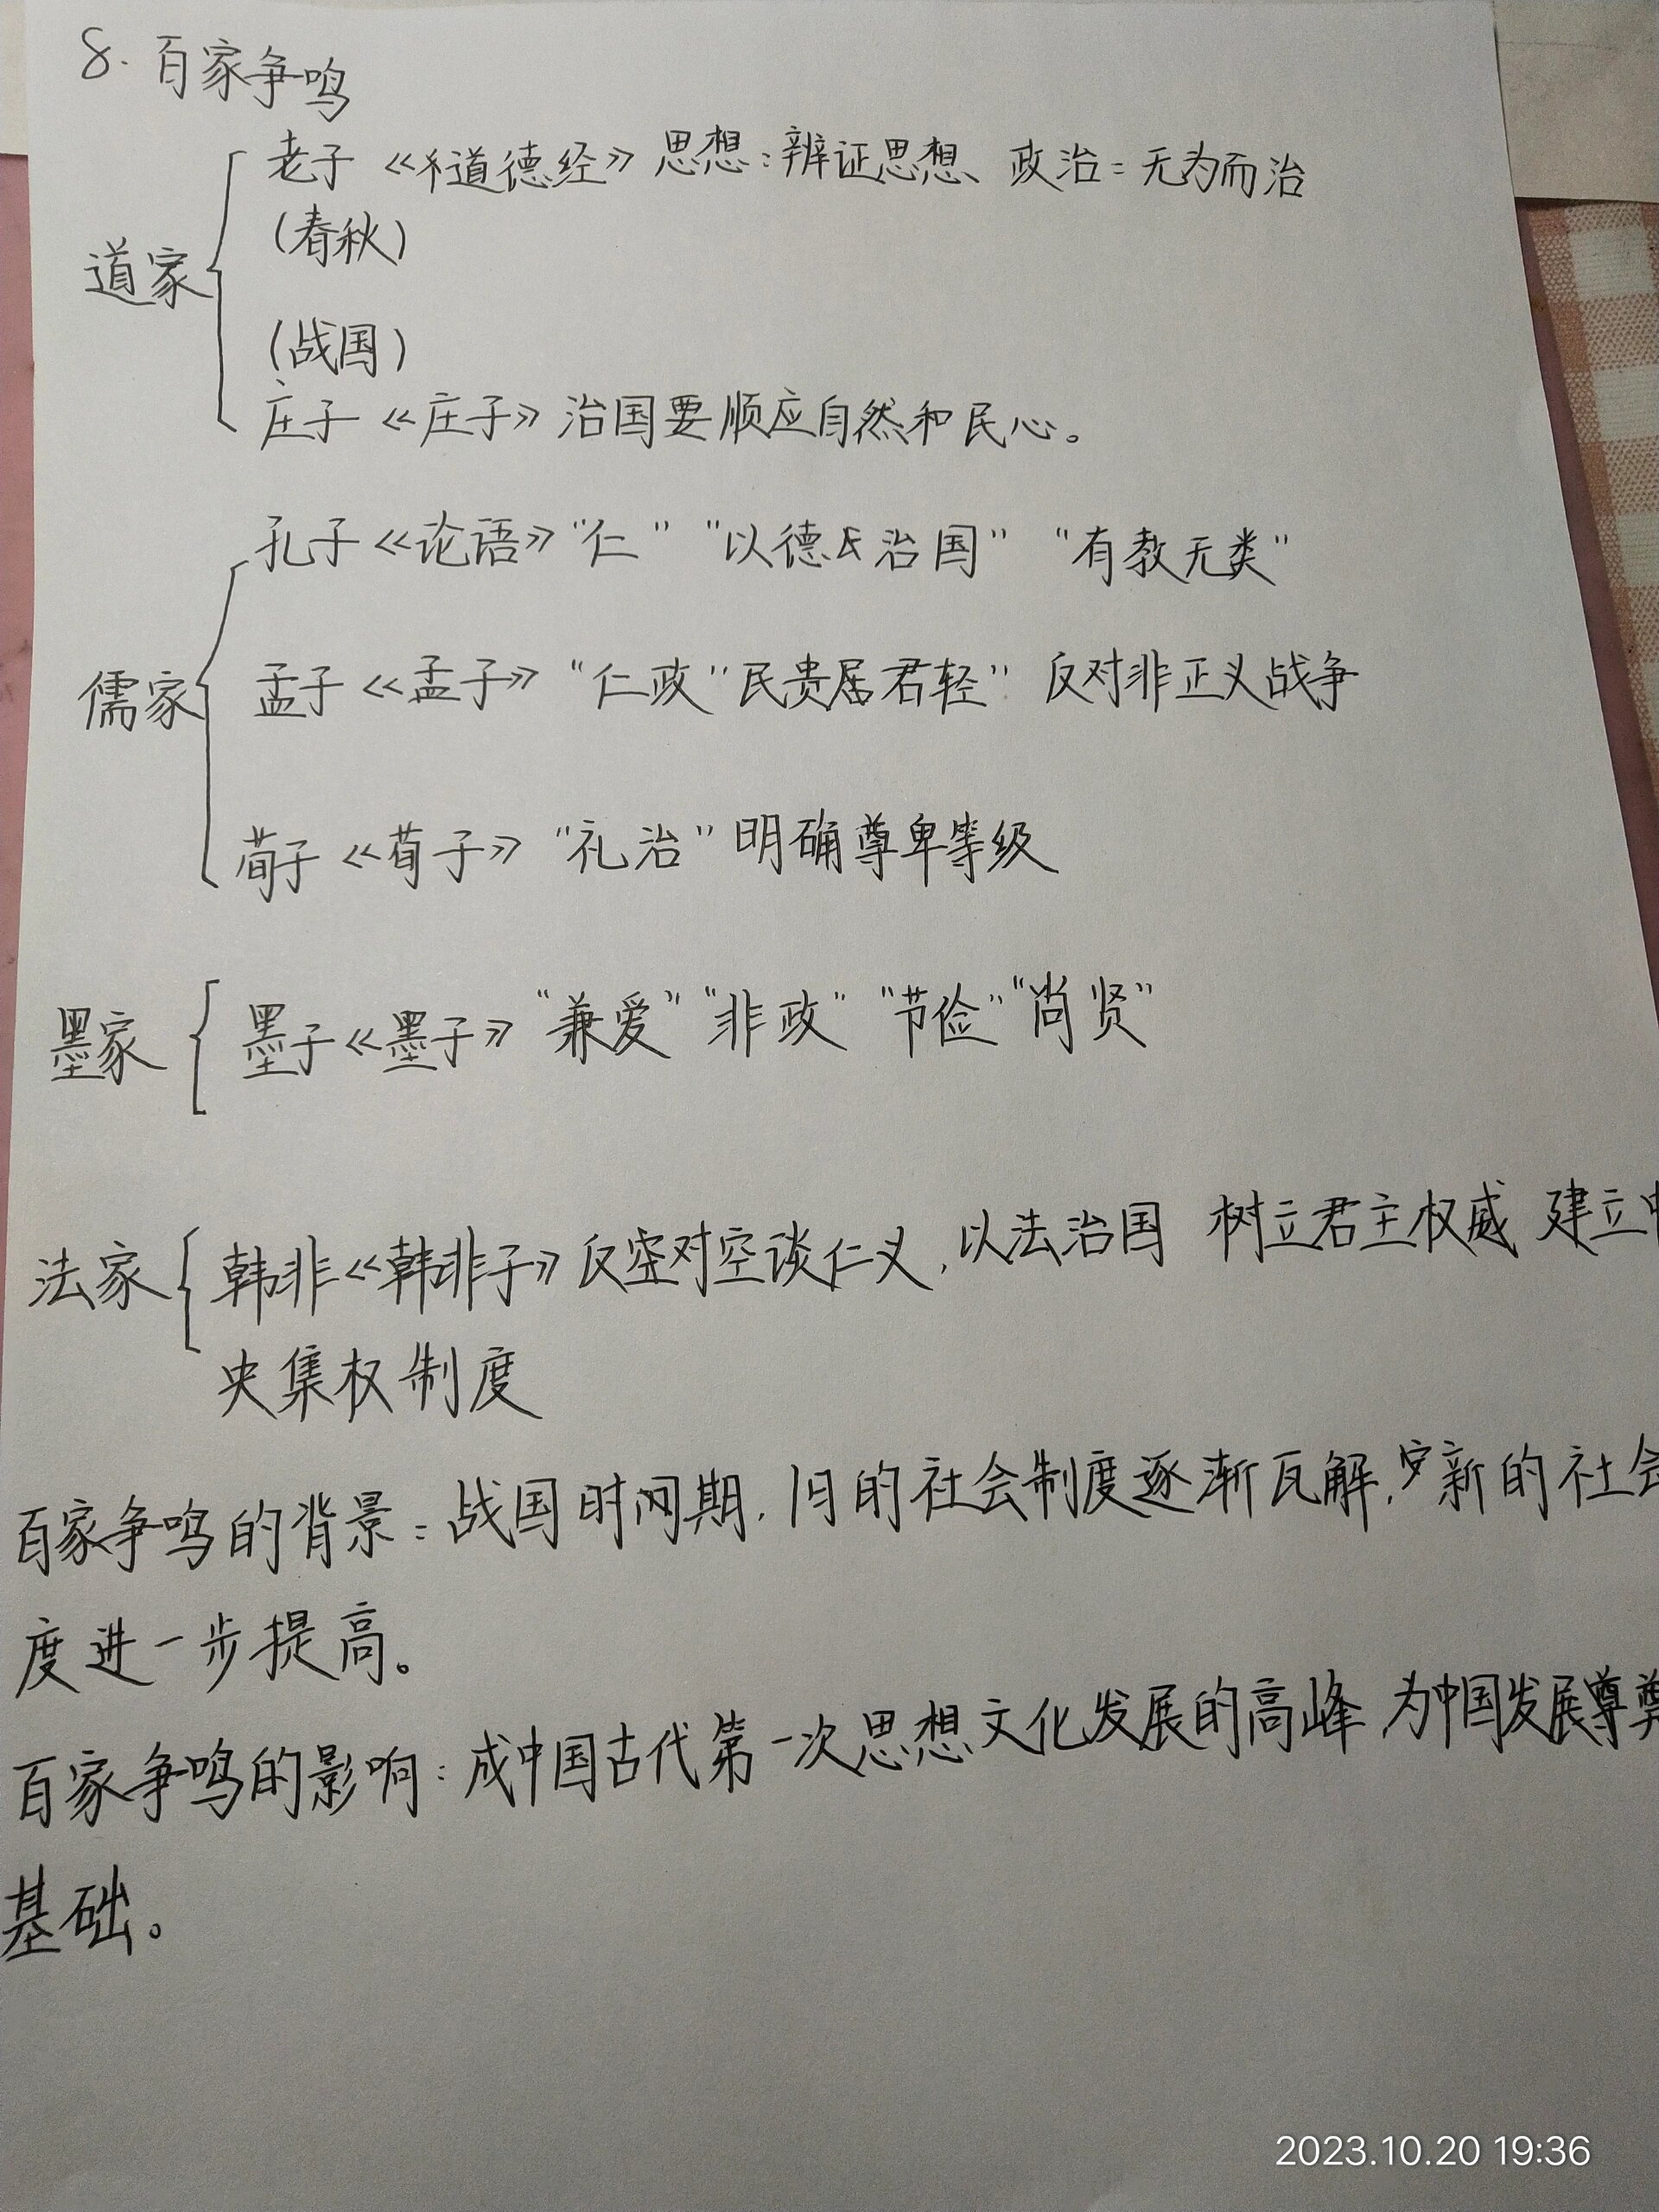 8. 百家争鸣
老子《道德经》思想:辨证思想、政治:无为而治
(春秋)
道家
(战国)
庄子《庄子》治国要顺应自然和民心。
孔子《论语》“仁”“以德治国”“有教无类”
儒家
孟子《孟子》“仁政”“民贵君轻”反对非正义战争
荀子《荀子》“礼治”明确尊卑等级
墨家 墨子《墨子》“兼爱”“非政”“节俭”“尚贤”
法家 韩非《韩非子》反对空谈仁义,以法治国 树立君主权威 建立中
央集权制度
百家争鸣的背景:战国时期,旧的社会制度逐渐瓦解,新的社会
度进一步提高。
百家争鸣的影响:成中国古代第一次思想文化发展的高峰,为中国发展奠
基础。
2023.10.20 19:36